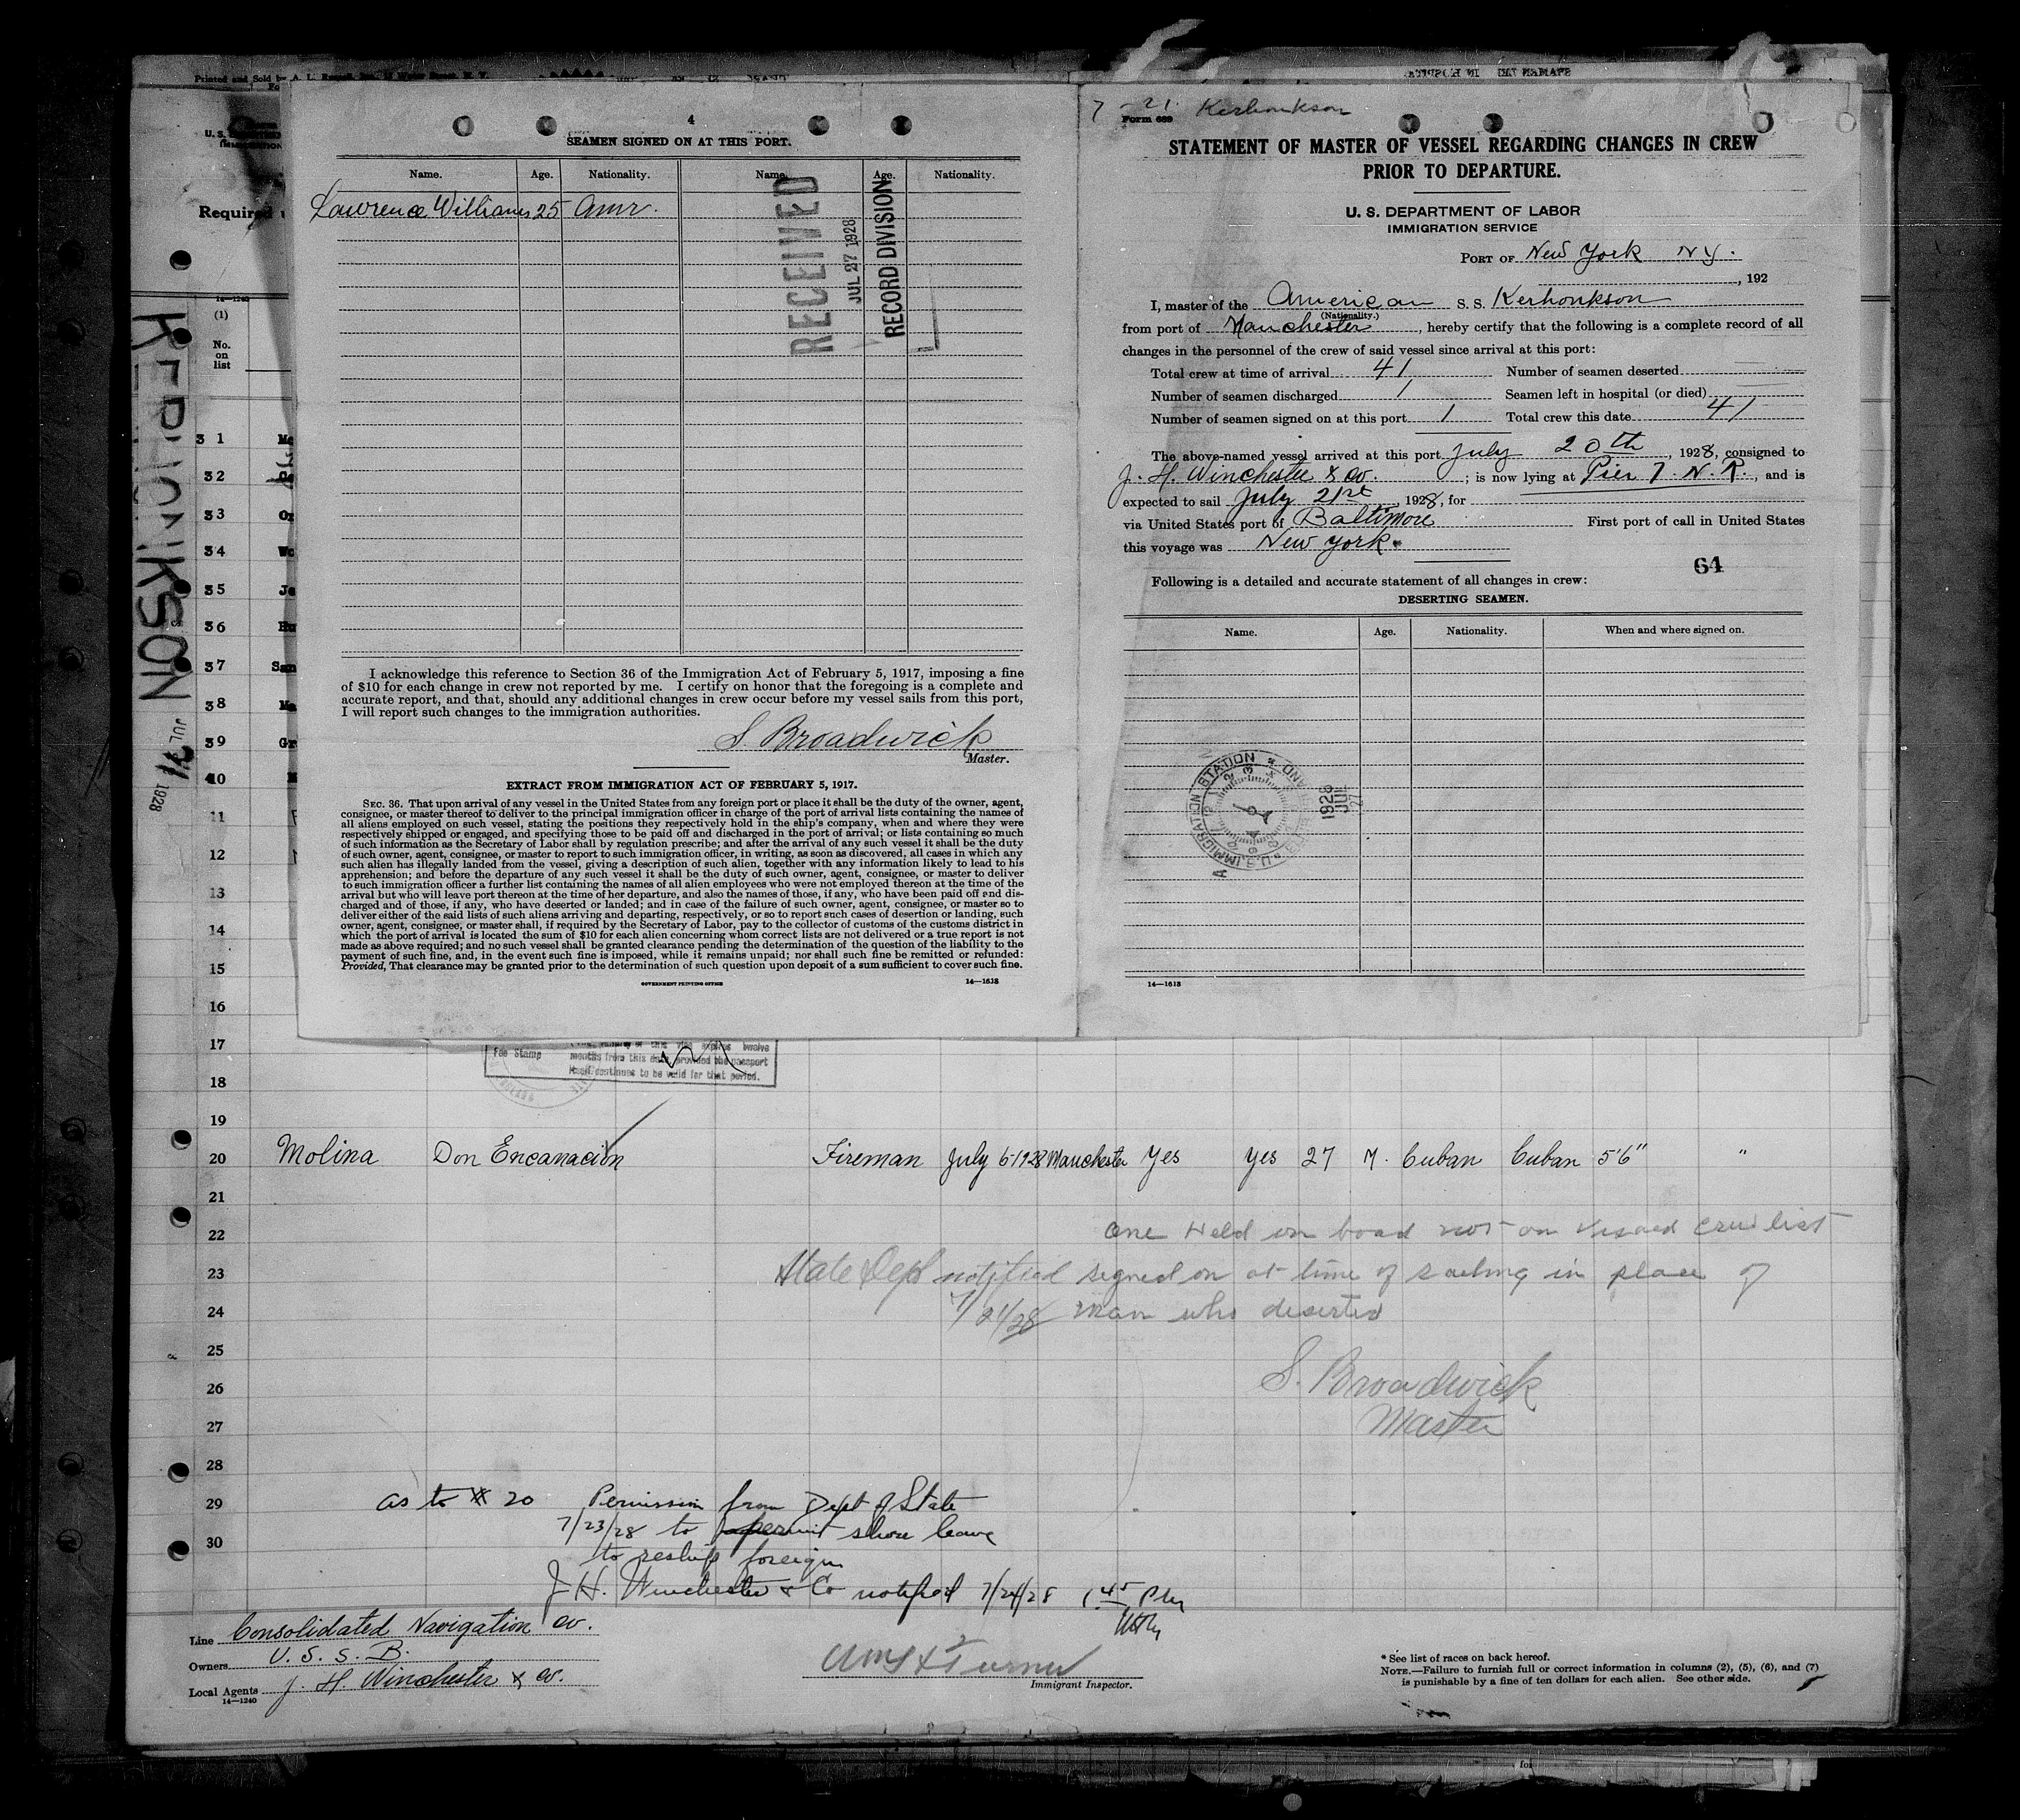 Printed and Sold by A. L. Russell, Inc.
SEAMEN IN HOSPITAL
4
SEAMEN SIGNED ON AT THIS PORT.
Name. Age. Nationality. Name. Age. Nationality.
Lawrence Williams 25 Amr.
RECEIVED
JUL 27 1928
RECORD DIVISION
I acknowledge this reference to Section 36 of the Immigration Act of February 5, 1917, imposing a fine
of $10 for each change in crew not reported by me. I certify on honor that the foregoing is a complete and
accurate report, and that, should any additional changes in crew occur before my vessel sails from this port,
I will report such changes to the immigration authorities.
S. Broadwick
Master.
EXTRACT FROM IMMIGRATION ACT OF FEBRUARY 5, 1917.
SEC. 36. That upon arrival of any vessel in the United States from any foreign port or place it shall be the duty of the owner, agent,
consignee, or master thereof to deliver to the principal immigration officer in charge of the port of arrival lists containing the names of
all aliens employed on such vessel, stating the positions they respectively hold in the ship's company, when and where they were
respectively shipped or engaged, and specifying those to be paid off and discharged in the port of arrival; or lists containing so much
of such information as the Secretary of Labor shall by regulation prescribe; and after the arrival of any such vessel it shall be the duty
of such owner, agent, consignee, or master to report to such immigration officer, in writing, as soon as discovered, all cases in which any
such alien has illegally landed from the vessel, giving a description of such alien, together with any information likely to lead to his
apprehension; and before the departure of any such vessel it shall be the duty of such owner, agent, consignee, or master to deliver
to such immigration officer a further list containing the names of all alien employees who were not employed thereon at the time of the
arrival but who will leave port thereon at the time of her departure, and also the names of those, if any, who have been paid off and dis-
charged and of those, if any, who have deserted or landed; and in case of the failure of such owner, agent, consignee, or master so to
deliver either of the said lists of such aliens arriving and departing, respectively, or so to report such cases of desertion or landing, such
owner, agent, consignee, or master shall, if required by the Secretary of Labor, pay to the collector of customs of the customs district in
which the port of arrival is located the sum of $10 for each alien concerning whom correct lists are not delivered or a true report is not
made as above required; and no such vessel shall be granted clearance pending the determination of the question of the liability to the
payment of such fine, and, in the event such fine is imposed, while it remains unpaid; nor shall such fine be remitted or refunded:
Provided, That clearance may be granted prior to the determination of such question upon deposit of a sum sufficient to cover such fine.
GOVERNMENT PRINTING OFFICE 14—1613
7 - 21. Kerhonkson
Form 689
STATEMENT OF MASTER OF VESSEL REGARDING CHANGES IN CREW
PRIOR TO DEPARTURE.
U. S. DEPARTMENT OF LABOR
IMMIGRATION SERVICE
PORT OF New York N Y.
, 192
I, master of the American S. S. Kerhonkson
(Nationality.)
from port of Manchester, hereby certify that the following is a complete record of all
changes in the personnel of the crew of said vessel since arrival at this port:
Total crew at time of arrival 41 Number of seamen deserted
Number of seamen discharged 1 Seamen left in hospital (or died)
Number of seamen signed on at this port 1 Total crew this date 41
The above-named vessel arrived at this port July 20th, 1928, consigned to
J. H. Winchester & Co. ; is now lying at Pier 7. N. R., and is
expected to sail July 21st, 1928, for
via United States port of Baltimore First port of call in United States
this voyage was New York.
64
Following is a detailed and accurate statement of all changes in crew:
DESERTING SEAMEN.
Name. Age. Nationality. When and where signed on.
1928
JUL
27
14—1613
Required
14—1240
(1)
No.
on
list
KERHONKSON
JUL 21 1928
3 1
3 2
3 3
3 4
3 5
3 6
37 San
38
39 Gr
40
11
12
13
14
15
16
17
Fee Stamp
months from this date, provided the passport
itself continues to be valid for that period.
18
19
20 Molina Don Encanacion Fireman July 6-1928 Manchester Yes Yes 27 M. Cuban Cuban 5'6" "
21
22 One Held on board not on visaed crew list
23 State Dept notified signed on at time of sailing in place of
24 7/21/28 man who deserted
25
26 S. Broadwick
27 Master
28
29 As to # 20 Permission from Dept of State
30 7/23/28 to permit shore leave
to reship foreign
J H. Winchester & Co notified 7/24/28 1 45 PM
Line Consolidated Navigation Co.
Owners U. S. S. B.
Local Agents J. H. Winchester & Co.
14—1240
Turner
Immigrant Inspector.
* See list of races on back hereof.
NOTE.—Failure to furnish full or correct information in columns (2), (5), (6), and (7)
is punishable by a fine of ten dollars for each alien. See other side.